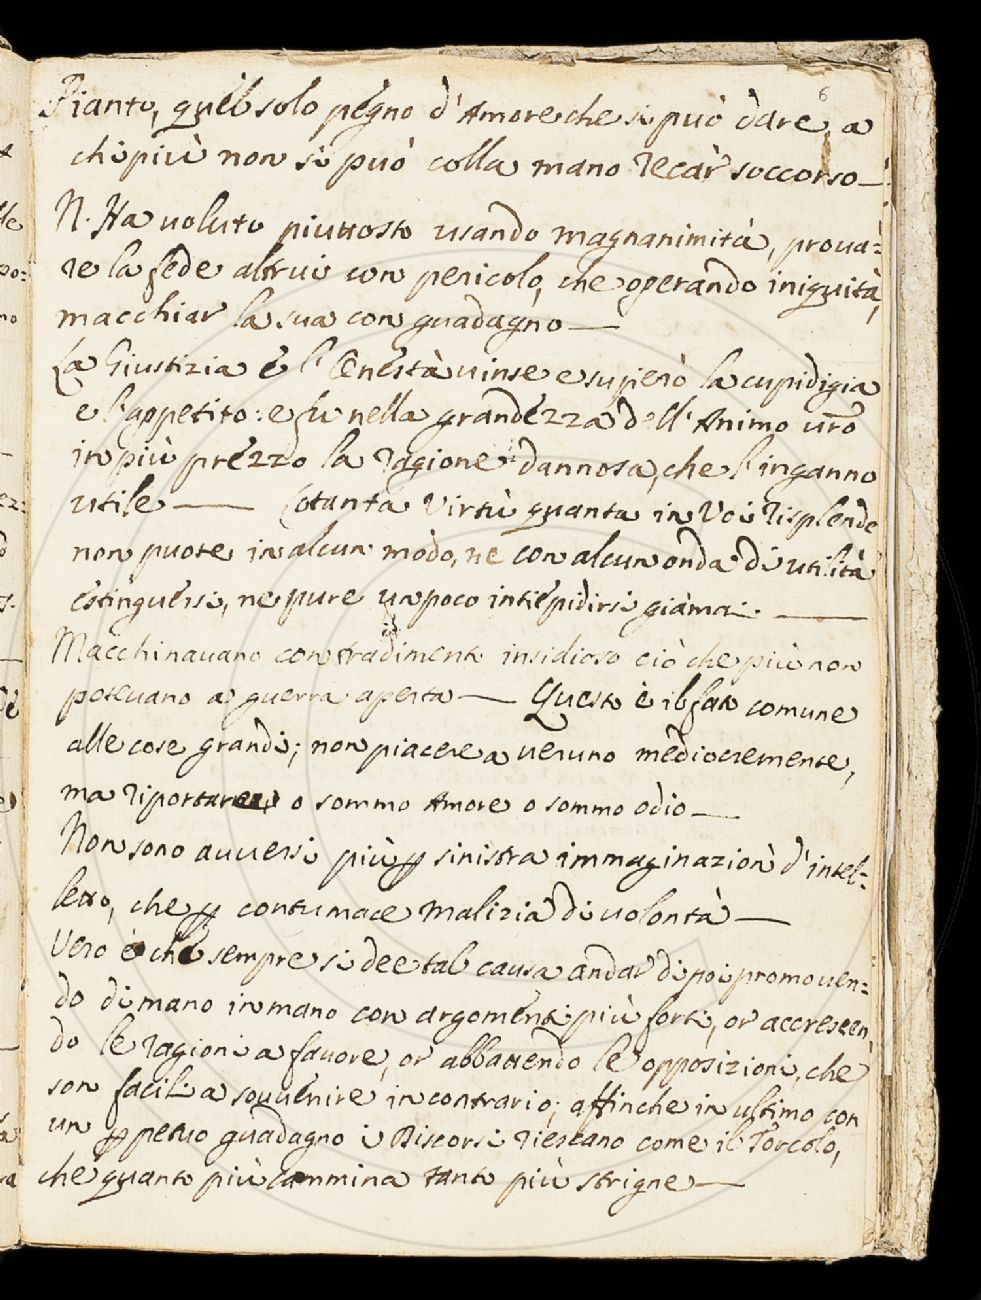 6
Pianto, quel solo pegno d'Amore che si può dare a
chi più non si può colla mano recar soccorso —
N. Ha voluto piuttosto usando magnanimità, prova=
re la fede altrui con pericolo, che operando iniquità,
macchiar la sua con guadagno —
La Giustizia e l'Onestà vinse e superò la cupidigia
e l'appetito: e fu nella grandezza dell'Animo vrõ
in più prezzo la ragione dannosa, che l'inganno
utile — Cotanta Virtù quanta in Voi risplende
non puote in alcun modo, ne con alcun onda di utilità
estinguersi, ne pure un poco intiepidirsi giàmai. —
Macchinavano con tradimento insidioso ciò che più non
potevano a guerra aperta — Questo è il fato comune
alle cose grandi; non piacere a veruno mediocremente,
ma riportare o sommo Amore o sommo odio —
Non sono avversi più ꝑ sinistra immaginazion d'intel=
letto, che ꝑ contumace malizia di volontà —
Vero è che sempre si dee tal causa andar di poi promoven=
do di mano in mano con argomenti più forti, or accrescen
do le ragioni a favore, or abbattendo le opposizioni, che
son facili a souvenire in contrario; affinche in ultimo con
un ꝑpetuo guadagno i Discorsi riescano come il Torcolo,
che quanto più cammina tanto più strigne —